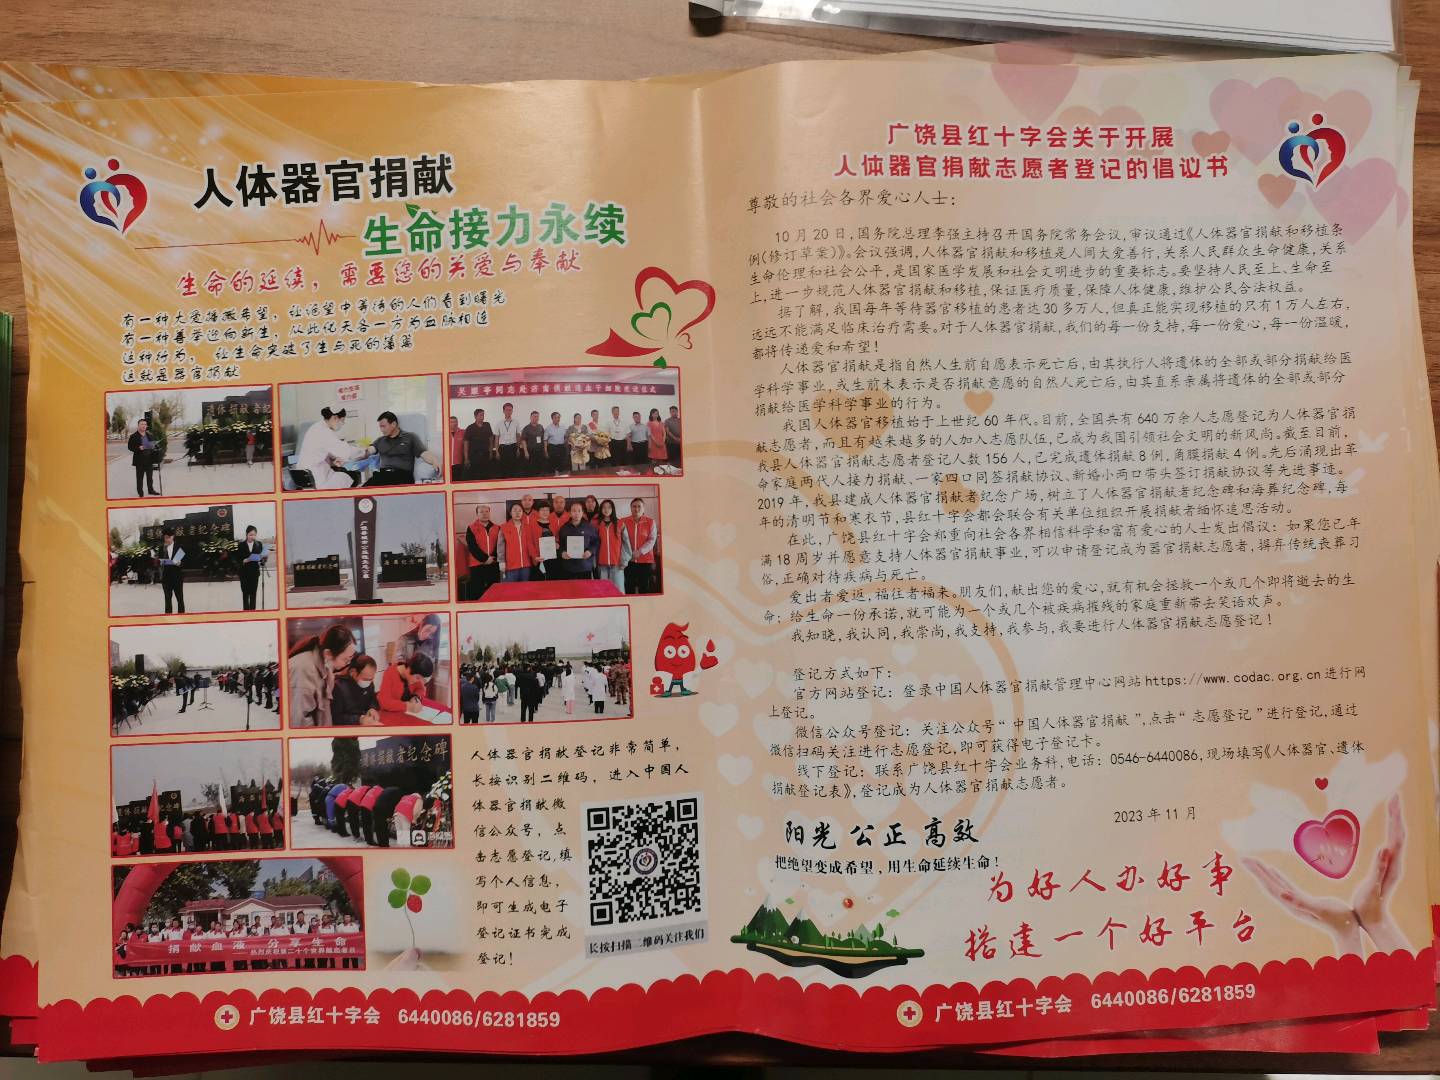 人体器官捐献
生命接力永续
生命的延续，需要您的关爱与奉献
有一种大爱播撒希望，让绝望中等待的人们看到曙光
有一种善举迎向新生，从此优天各一方为血脉相连
这种行为， 让生命突破了生与死的藩篱
这就是器官捐献
遗体捐献者纪
海葬纪念碑
遗体捐献者纪念碑
捐献血液 分享生命
——热烈庆祝第二十个世界献血者日
人体器官捐献登记非常简单，
长按识别二维码，进入中国人
体器官捐献微
信公众号，点
击志愿登记,填
写个人信息，
即可生成电子
登记证书完成
登记！
长按扫描二维码关注我们
广饶县红十字会 6440086/6281859
广饶县红十字会关于开展
人体器官捐献志愿者登记的倡议书
尊敬的社会各界爱心人士：
10月20日,国务院总理李强主持召开国务院常务会议,审议通过《人体器官捐献和移植条
例(修订草案)》。会议强调,人体器官捐献和移植是人间大爱善行,关系人民群众生命健康,关系
生命伦理和社会公平,是国家医学发展和社会文明进步的重要标志。要坚持人民至上、生命至
上,进一步规范人体器官捐献和移植,保证医疗质量,保障人体健康,维护公民合法权益。
据了解,我国每年等待器官移植的患者达30多万人,但真正能实现移植的只有1万人左右,
远远不能满足临床治疗需要。对于人体器官捐献,我们的每一份支持,每一份爱心,每一份温暖,
都将传递爱和希望！
人体器官捐献是指自然人生前自愿表示死亡后,由其执行人将遗体的全部或部分捐献给医
学科学事业,或生前未表示是否捐献意愿的自然人死亡后,由其直系亲属将遗体的全部或部分
捐献给医学科学事业的行为。
我国人体器官移植始于上世纪60年代。目前,全国共有640万余人志愿登记为人体器官捐
献志愿者,而且有越来越多的人加入志愿队伍,已成为我国引领社会文明的新风尚。截至目前,
我县人体器官捐献志愿者登记人数156人,已完成遗体捐献8例,角膜捐献4例。先后涌现出革
命家庭两代人接力捐献、一家四口同签捐献协议、新婚小两口带头签订捐献协议等先进事迹。
2019年,我县建成人体器官捐献者纪念广场,树立了人体器官捐献者纪念碑和海葬纪念碑,每
年的清明节和寒衣节,县红十字会都会联合有关单位组织开展捐献者缅怀追思活动。
在此,广饶县红十字会郑重向社会各界相信科学和富有爱心的人士发出倡议：如果您已年
满18周岁并愿意支持人体器官捐献事业,可以申请登记成为器官捐献志愿者,摒弃传统丧葬习
俗,正确对待疾病与死亡。
爱出者爱返,福往者福来。朋友们,献出您的爱心,就有机会拯救一个或几个即将逝去的生
命；给生命一份承诺,就可能为一个或几个被疾病摧残的家庭重新带去笑语欢声。
我知晓,我认同,我崇尚,我支持,我参与,我要进行人体器官捐献志愿登记！
登记方式如下：
官方网站登记：登录中国人体器官捐献管理中心网站https://www.codac.org.cn进行网
上登记。
微信公众号登记：关注公众号“中国人体器官捐献”,点击“志愿登记”进行登记,通过
微信扫码关注进行志愿登记,即可获得电子登记卡。
线下登记：联系广饶县红十字会业务科,电话：0546-6440086,现场填写《人体器官、遗体
捐献登记表》,登记成为人体器官捐献志愿者。
2023年11月
阳光 公正 高效
把绝望变成希望，用生命延续生命！
为好人办好事
搭建一个好平台
广饶县红十字会 6440086/6281859